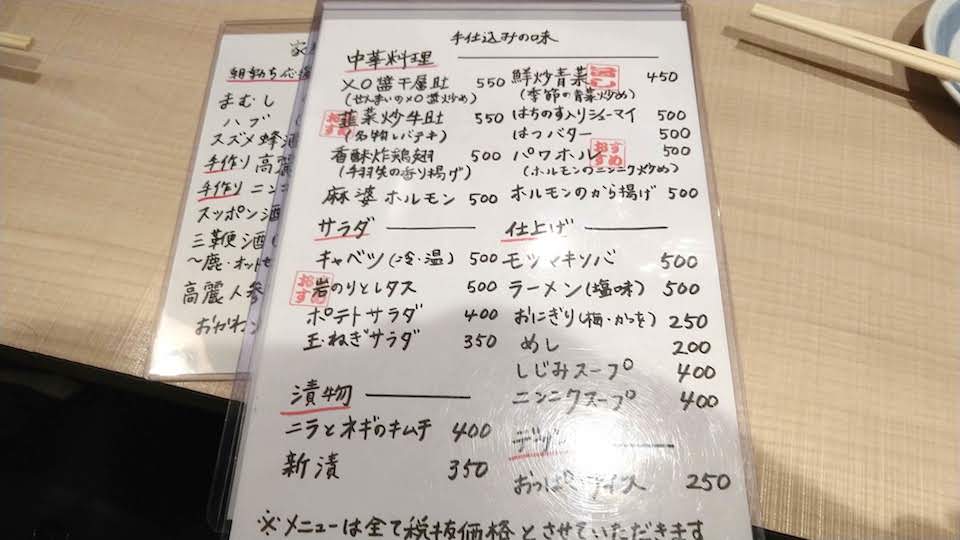 手仕込みの味
中華料理
XO醬干層肚 550
(せんまいのXO醬炒め)
おすすめ
韮菜炒牛肚 550
(名物レバテキ)
香酥炸鶏翅 500
(手羽先の香り揚げ)
麻婆ホルモン 500
鮮炒青菜 450
(季節の青菜炒め)
はちのす入りシューマイ 500
はつバター 500
パワホル 500
おすすめ
(ホルモンのニンニク炒め)
ホルモンのから揚げ 500
サラダ
キャベツ(冷・温) 500
おすすめ
岩のりとレタス 500
ポテトサラダ 400
玉ねぎサラダ 350
漬物
ニラとネギのキムチ 400
新漬 350
仕上げ
モツマキソバ 500
ラーメン(塩味) 500
おにぎり(梅・かつを) 250
めし 200
しじみスープ 400
ニンニクスープ 400
デザ
おっぱ アイス 250
※メニューは全て税抜価格とさせていただきます
朝勃ち応
まむし
ハブ
スズメ蜂酒
手作り高麗
手作りニン
スッポン酒
三鞭酒
〜鹿・オットセ
高麗人参
おかわ